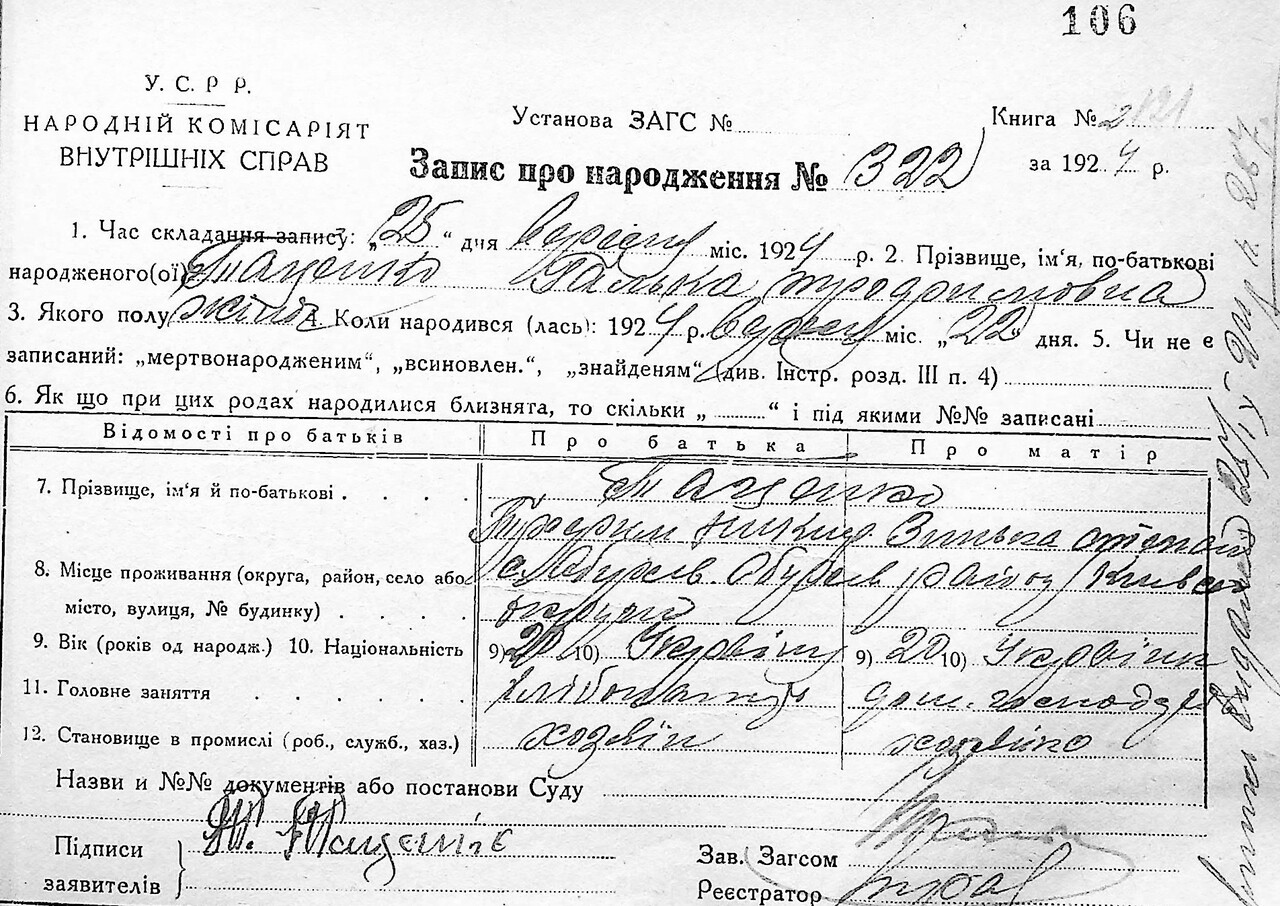 106
У. С. Р Р.
НАРОДНІЙ КОМІСАРІЯТ
ВНУТРІШНІХ СПРАВ
Установа ЗАГС №
Книга № 2
Запис про народження № 322
за 1924 р.
1. Час складання запису: „25“ дня вересня міс. 1924 р. 2. Прізвище, ім'я, по-батькові
народженого(ої) Таценко Галька Трофимовна
3. Якого полу жіноч 4. Коли народився (лась): 1924 р. вересня міс. „22“ дня. 5. Чи не є
записаний: „мертвонародженим“, „всиновлен.“, „знайденям“ (див. Інстр. розд. III п. 4)
6. Як що при цих родах народилися близнята, то скільки „ “ і під якими №№ записані
Відомості про батьків Про батька Про матір
7. Прізвище, ім'я й по-батькові Таценко
Трохим Никиф Зинька
8. Місце проживання (округа, район, село або Обухів район Київськ
місто, вулиця, № будинку) округи
9. Вік (років од народж.) 10. Національність 9) 20 10) Українц 9) 20 10) Українк
11. Головне заняття хлібопашец дом. господар
12. Становище в промислі (роб., служб., хаз.) хозяін хозяйка
Назви и №№ документів або постанови Суду
Підписи
заявителів
Т. Таценко
Зав. Загсом
Реєстратор